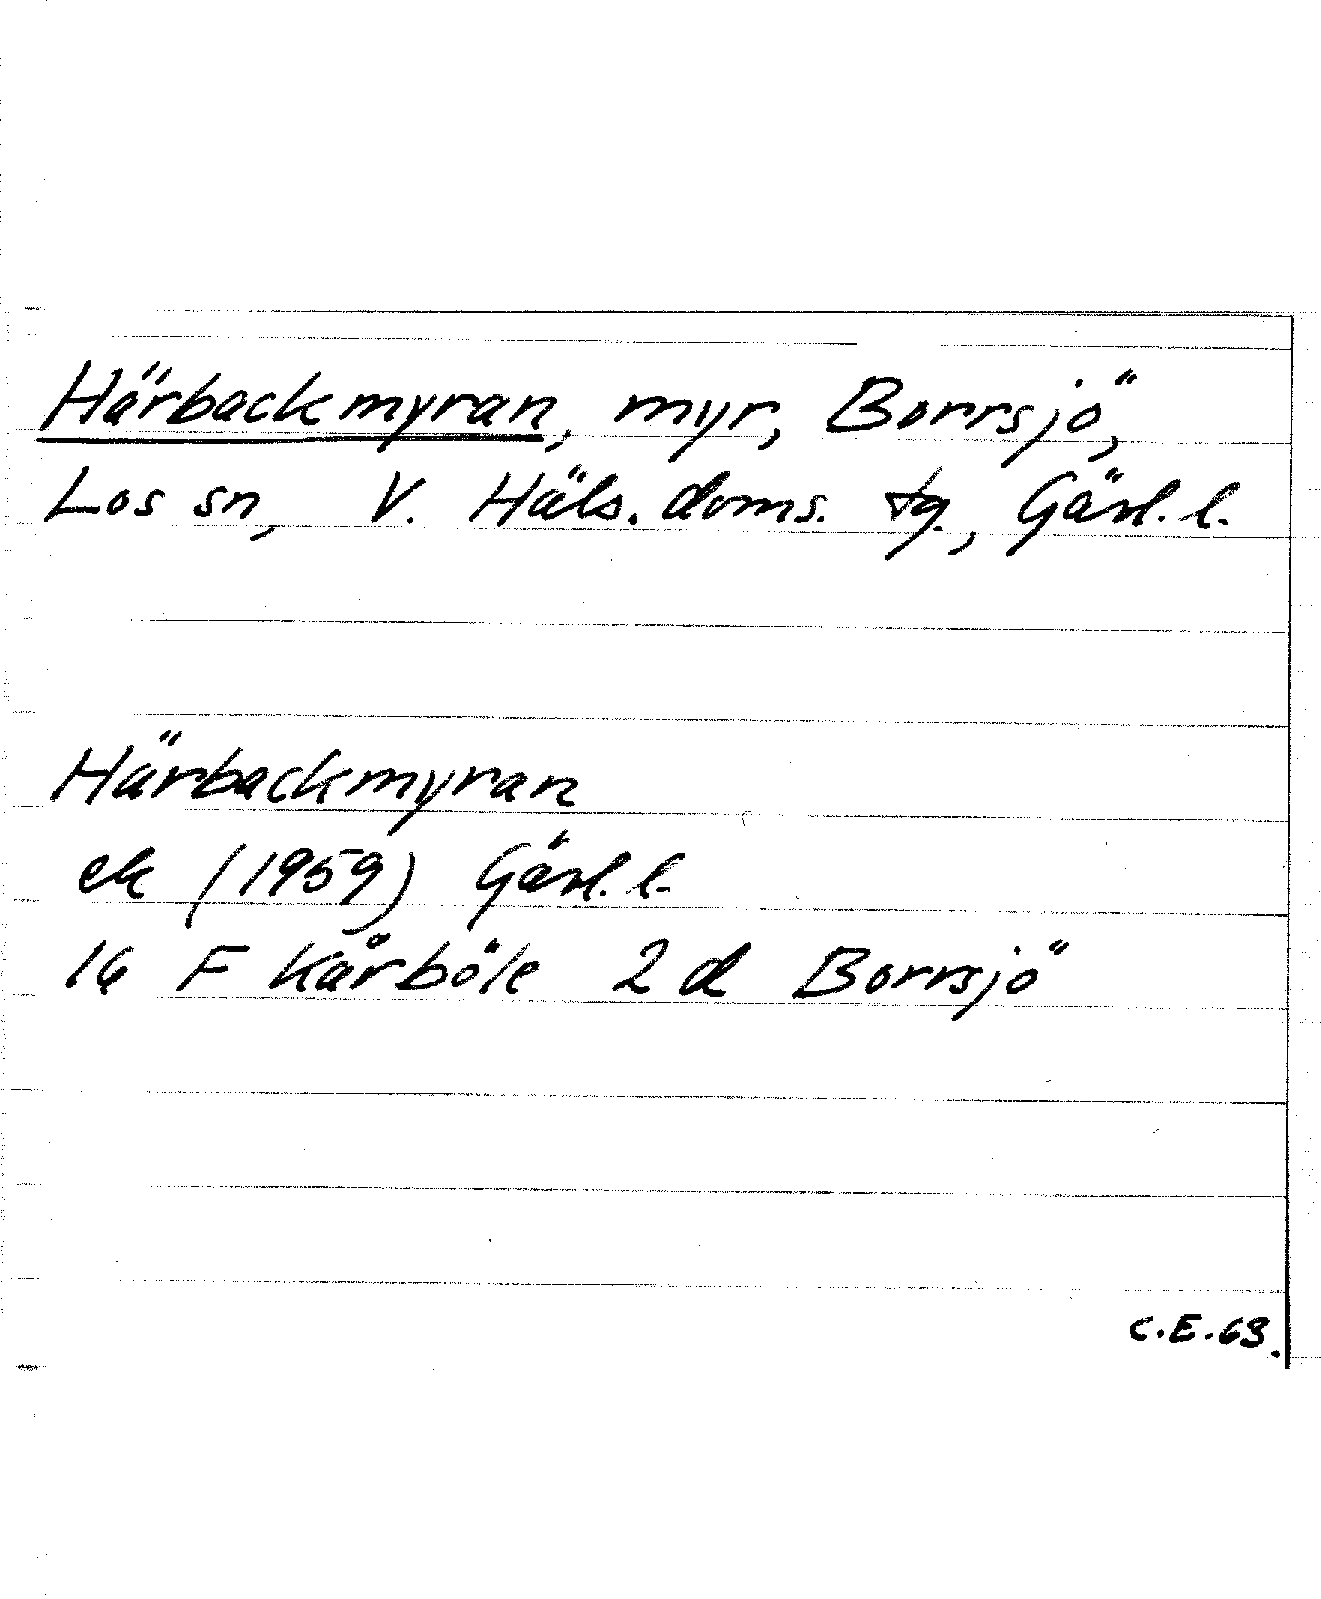 Härbackmyran, myr, Borrsjö,
Los sn, V. Häls. doms. tg., Gävl. l.
Härbackmyran
ek (1959) Gävl. l.
16 F Kårböle 2 d Borrsjö
C.E.63.